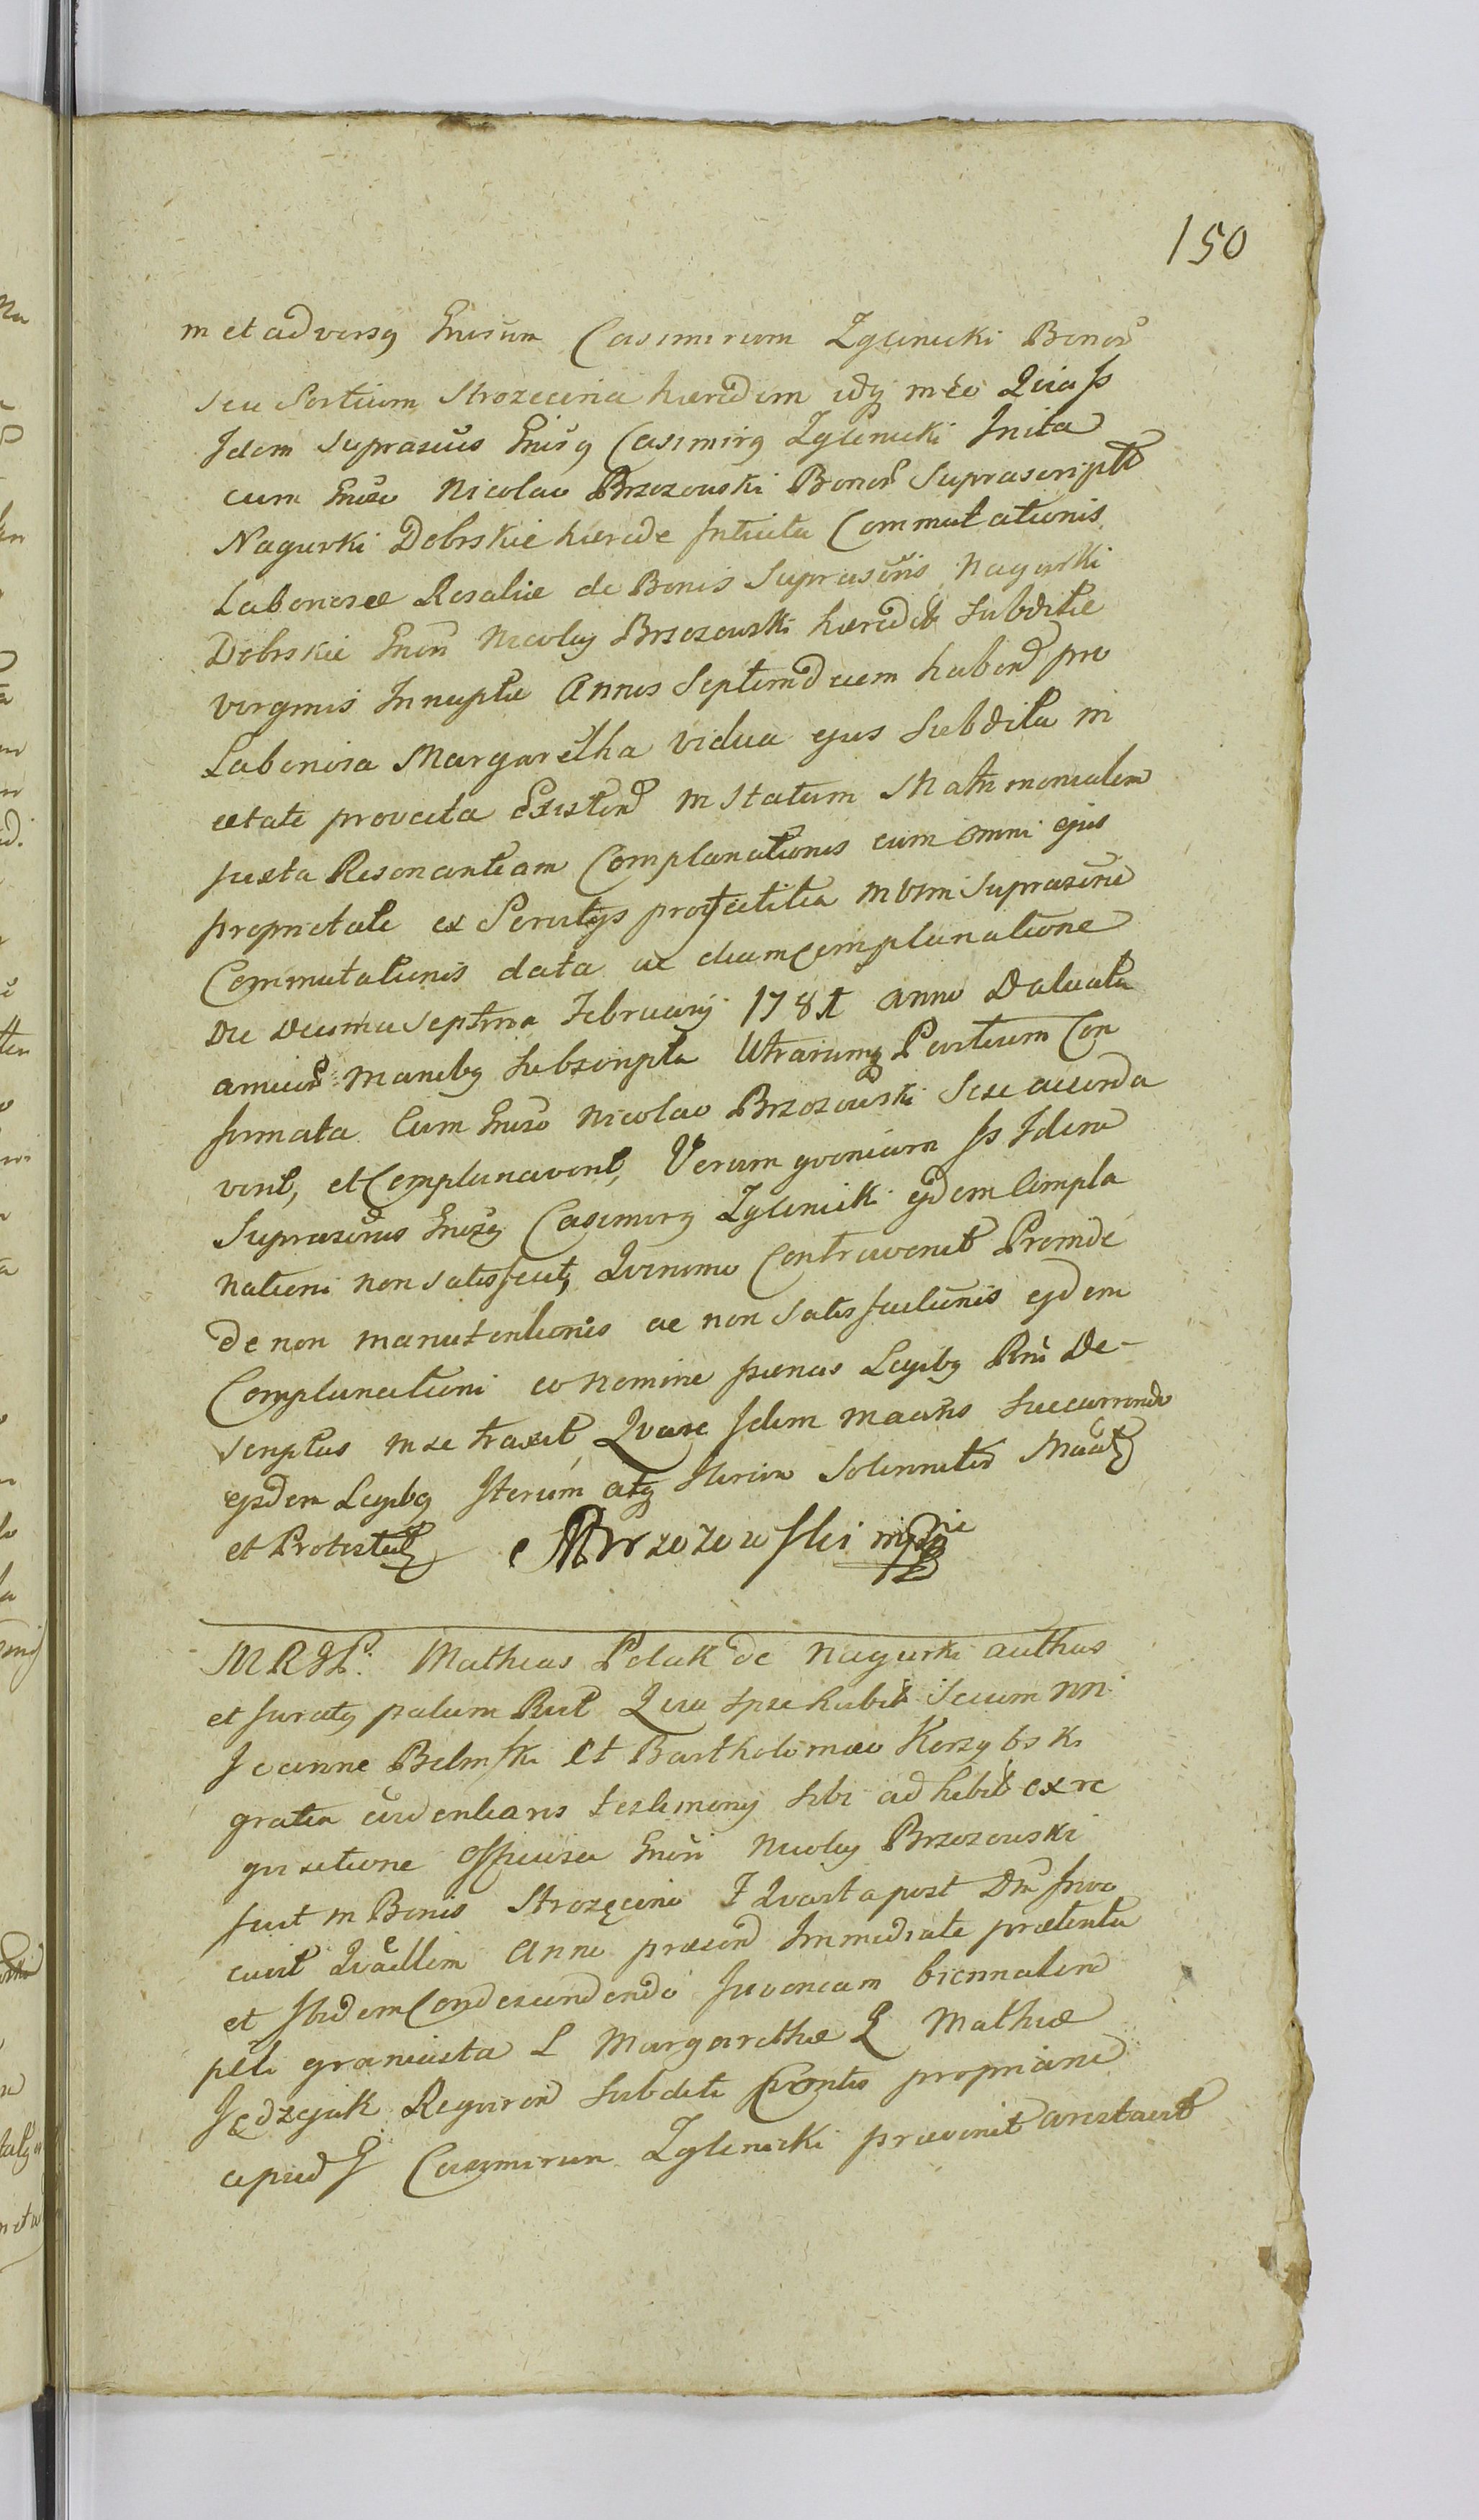 150
in et adversq Gnrsum Casimirum Zglinicki Bonor
seu Sortium Strozecina haeredem idq meo Quia Is
Idem Suprascius Gnrsq Casimirq Zglinicki Inita
cum Gnrso Nicolao Brzozowski Bonor Suprascript
Nagurki Dobrskie haerede Intuitu Commutationis
Laboriosae Rosaliae de Bonis Suprascris Nagurki
Dobrskie Gnri Nicolay Brzozowski haeredit Subditae
virginis Innuptae Annos Septemdecem haben pro
Laboriosa Margaretha vidua ejus Subdita in
aetate provecta Existen in Statum Matrimonialem
juxta Resonantiam Complanationis cum omni ejus
proprietate ex Servitijs profectitia in vim Suprascrie
Commutationis data ac etiam complanatione
Die Decima Septima February 1781 anno Datuata
amicor manibq Subscripta Utrarumq Partium Con
firmata Cum Gnrso Nicolao Brzozowski Sese accorda
verit, et Complanaverit, Verum qvoniam Is Idem
Suprascrius Gnrsq Casimirq Zglinicki ejdem Compla
nationi non satisfecit, Qvinimo Contravenit Proinde
de non manutentionis ac non Satisfactionis ejdem
Complanationi eo nomine paenas Legibq Rni De-
scriptas in se traxit, Qvare Idem maens Succurrendo
ejsdem Legibq Iterum atq Iterum Solenniter Maat
et Protestat MBrzozowski mpie
MRGL. Mathias Polak de Nagurki authus
et juratq palam Rut Quia Ipse habit Secum nn
Joanne Bilinski et Bartholomaeo Korzybski
gratia evidentiaris testimony sibi adhibit ex re
quisitione Officiosa Gnri Nicolay Brzozowski
fuit in Bonis Strozęcino F Qvarta post Dm Invo
cavit Anni praesen Immediate praeterita
et Ibidem Condescendendo Juvencam biennalem
peli graniasta L Margarethae L Mathiae
Jędrzejak Reqviren Subditi propriam
apud G Casimirum Zglinicki praevenit arestavit